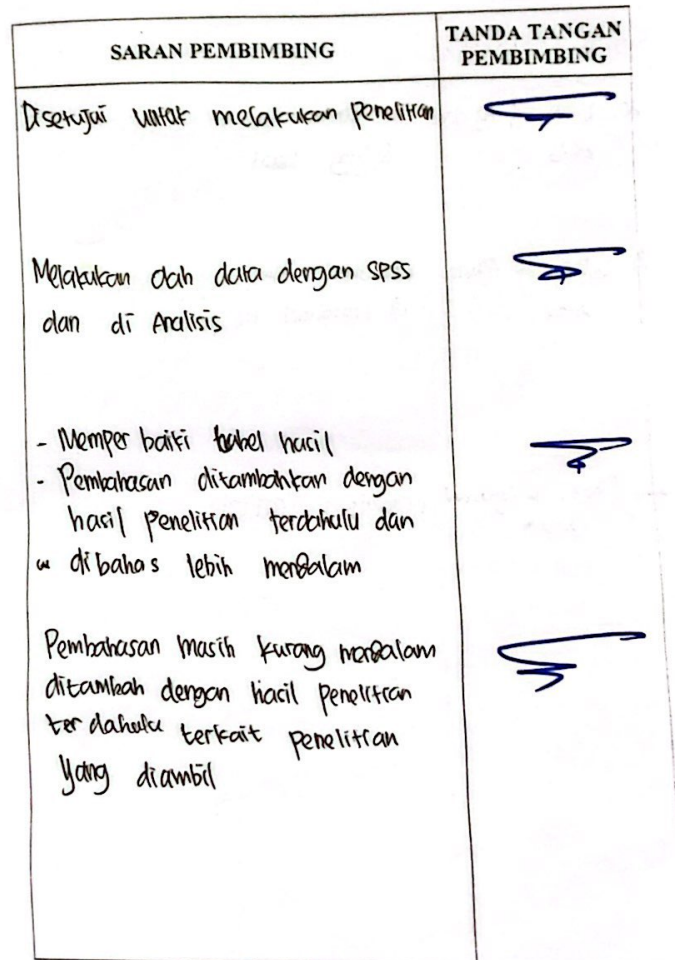 SARAN PEMBIMBING
TANDA TANGAN
PEMBIMBING
Disetujui untuk melakukan penelitian
Melakukan olah data dengan SPSS
dan di Analisis
- Memperbaiki tabel hasil
- Pembahasan ditambahkan dengan
hasil penelitian terdahulu dan
dibahas lebih mendalam
Pembahasan masih kurang mendalam
ditambah dengan hasil penelitian
terdahulu terkait penelitian
yang diambil